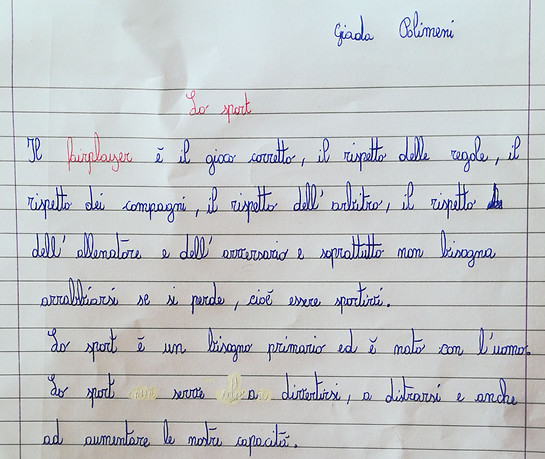 Giada Polimeni
Lo sport
Il fairplayer è il gioco corretto, il rispetto delle regole, il
rispetto dei compagni, il rispetto dell'arbitro, il rispetto
dell'allenatore e dell'avversario e soprattutto non bisogna
arrabbiarsi se si perde, cioè essere sportivi.
Lo sport è un bisogno primario ed è nato con l'uomo.
Lo sport serve a divertirsi, a distrarsi e anche
ad aumentare le nostre capacità.